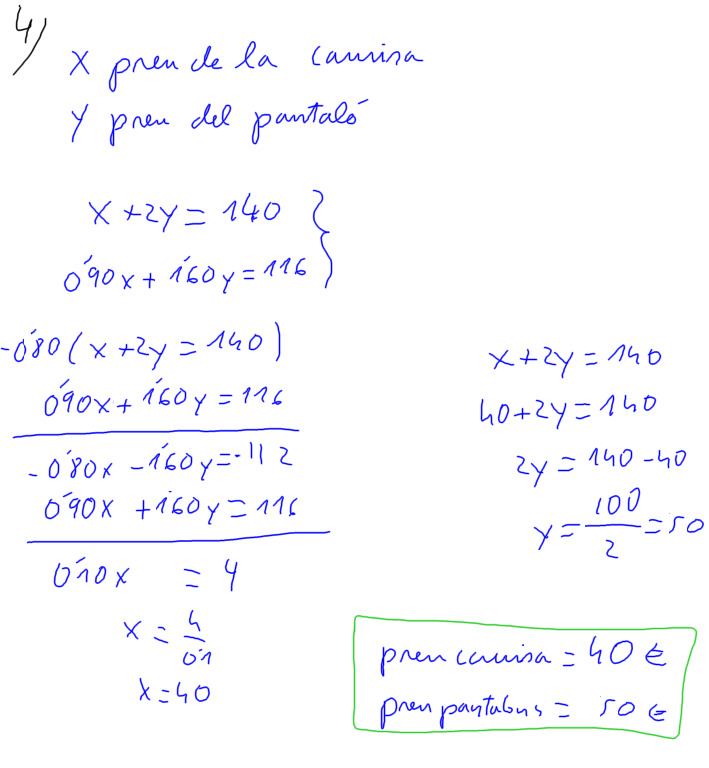 4)
x preu de la camisa
y preu del pantaló
x + 2y = 140 }
0'90x + 1'60y = 116
-0'80 ( x + 2y = 140 )
0'90x + 1'60y = 116
-0'80x - 1'60y = -112
0'90x + 1'60y = 116
0'10x = 4
x = 4/0'1
x = 40
x + 2y = 140
40 + 2y = 140
2y = 140 - 40
y = 100/2 = 50
preu camisa = 40 €
preu pantalons = 50 €